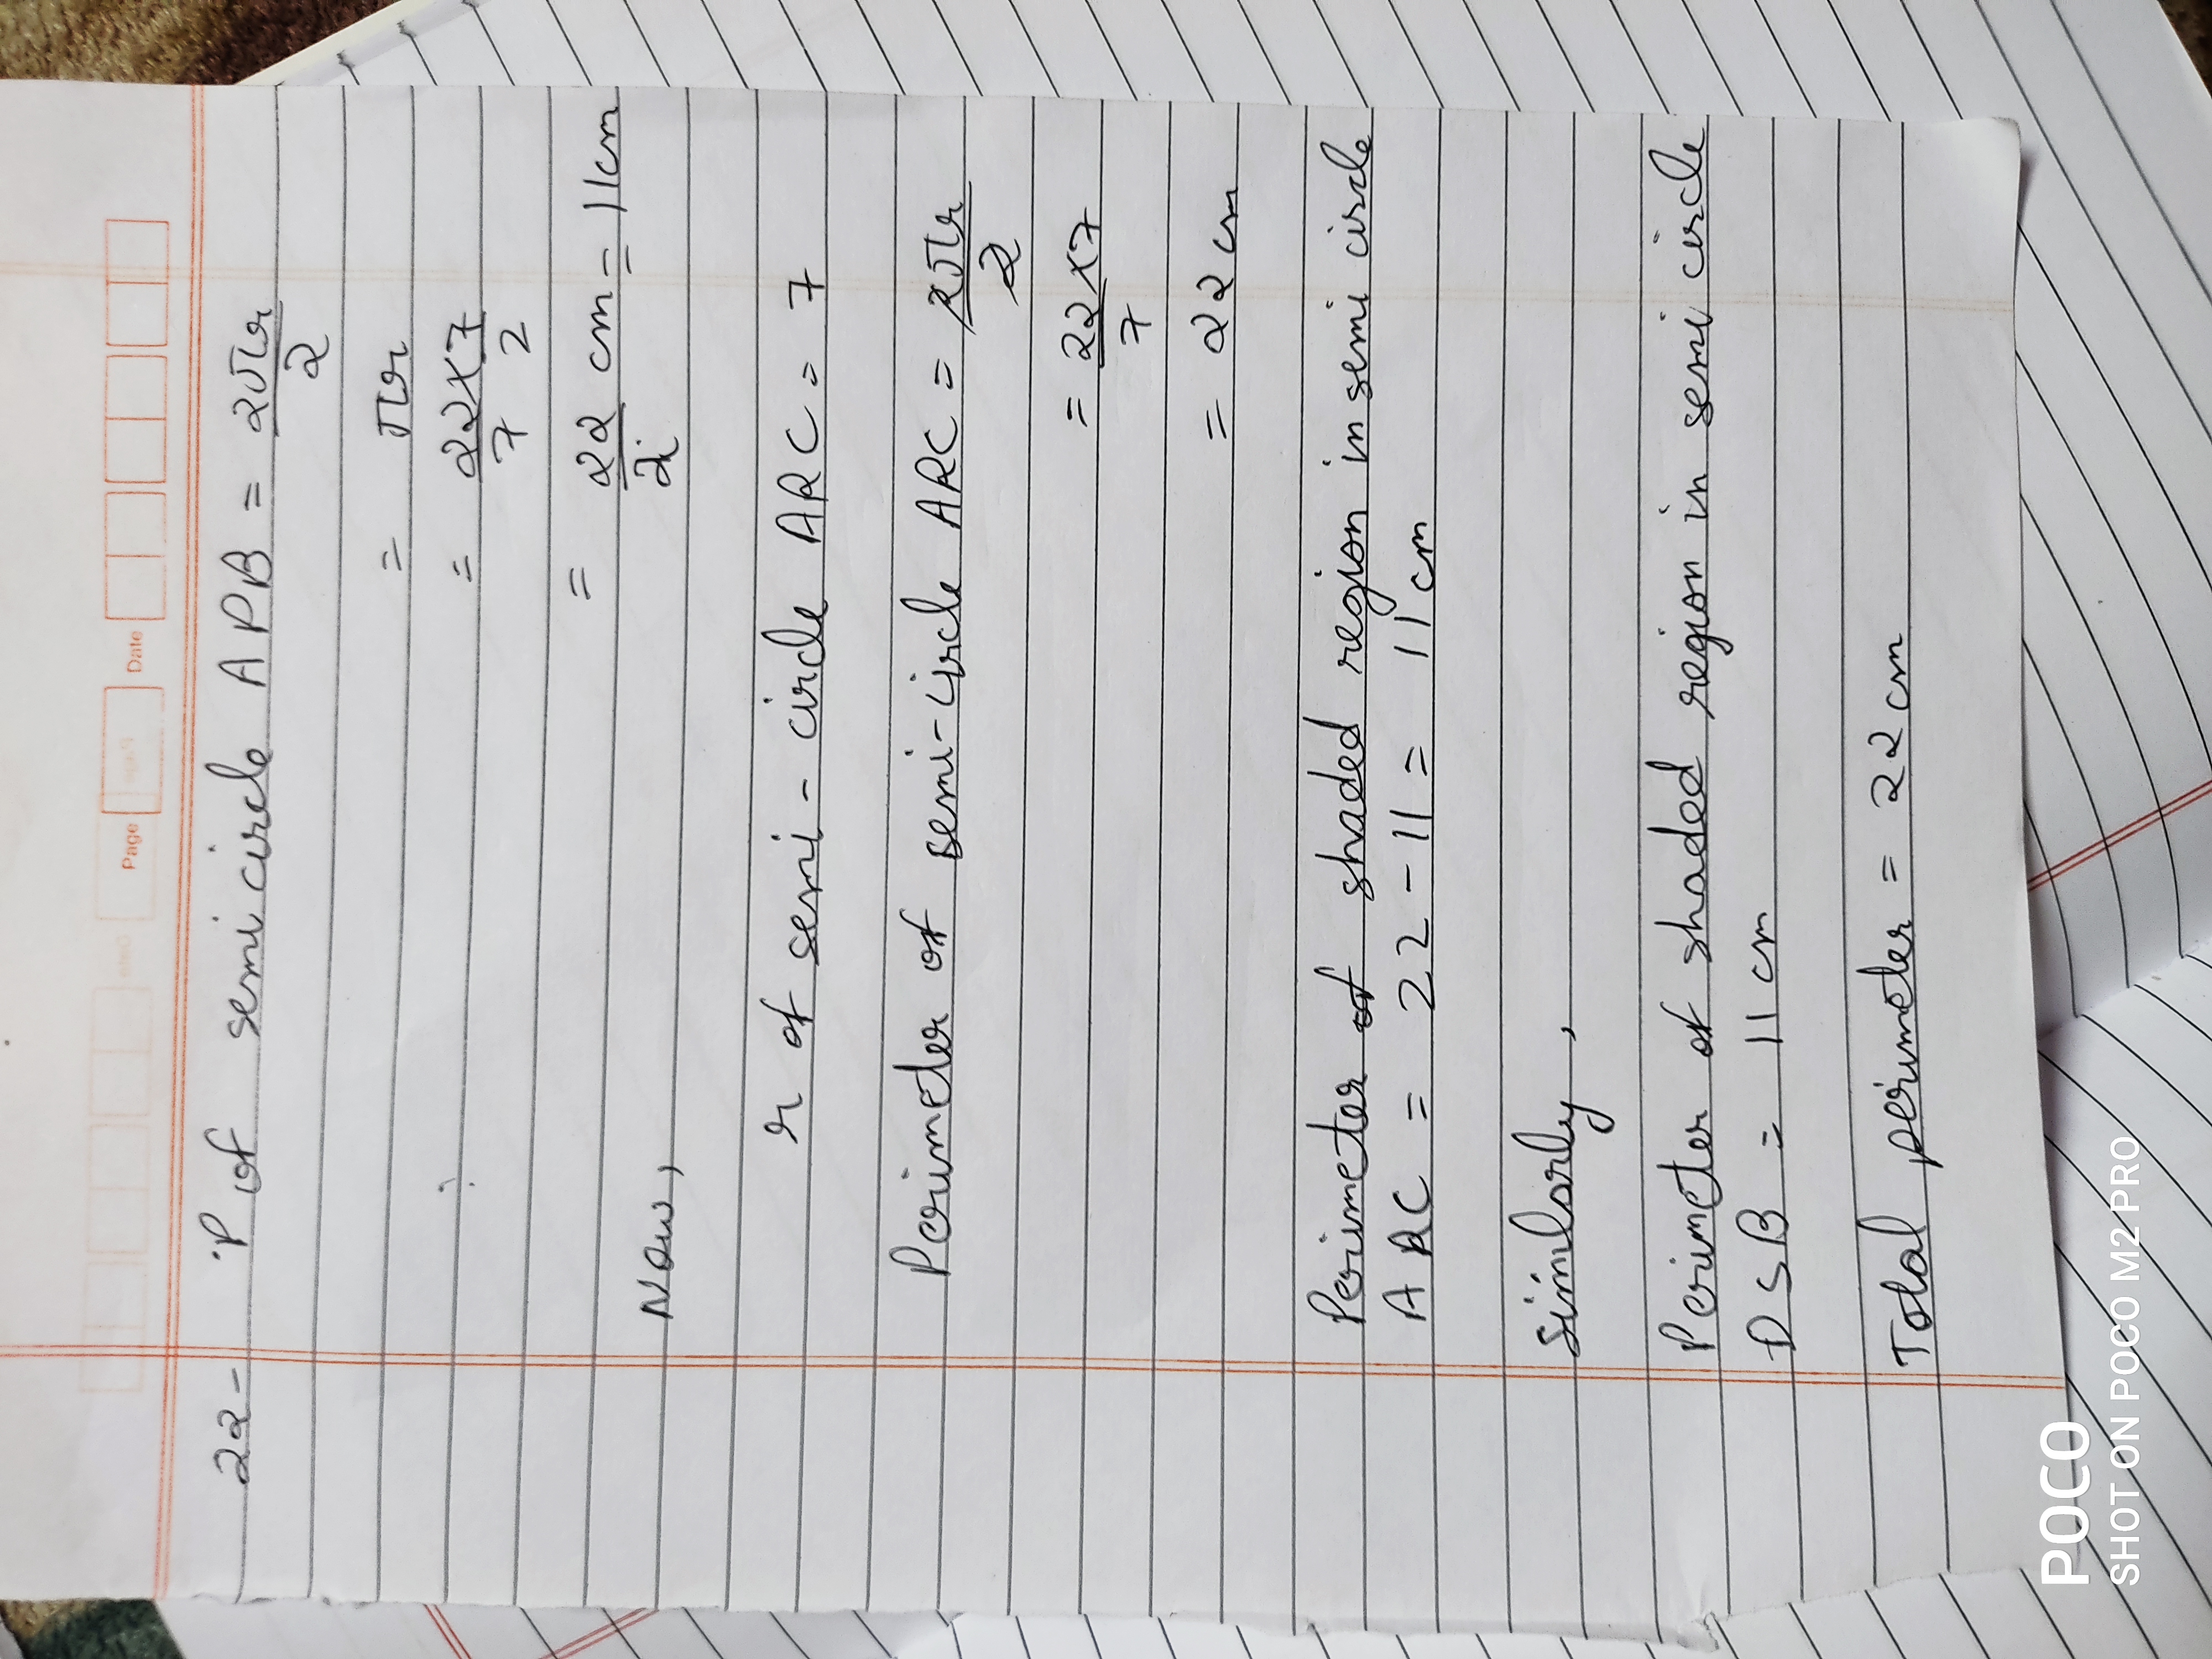 Page
Date
22- P of semi circle APB = 2πr/2
= πr
= 22×7/7 2
= 22/2 cm = 11cm
Now,
r of semi-circle ARC = 7
Perimeter of semi-circle ARC = 2πr/2
= 22×7/7
= 22 cm
Perimeter of shaded region in semi circle
ARC = 22-11 = 11 cm
Similarly,
Perimeter of shaded region in semi circle
DSB = 11 cm
Total perimeter = 22 cm
POCO
SHOT ON POCO M2 PRO